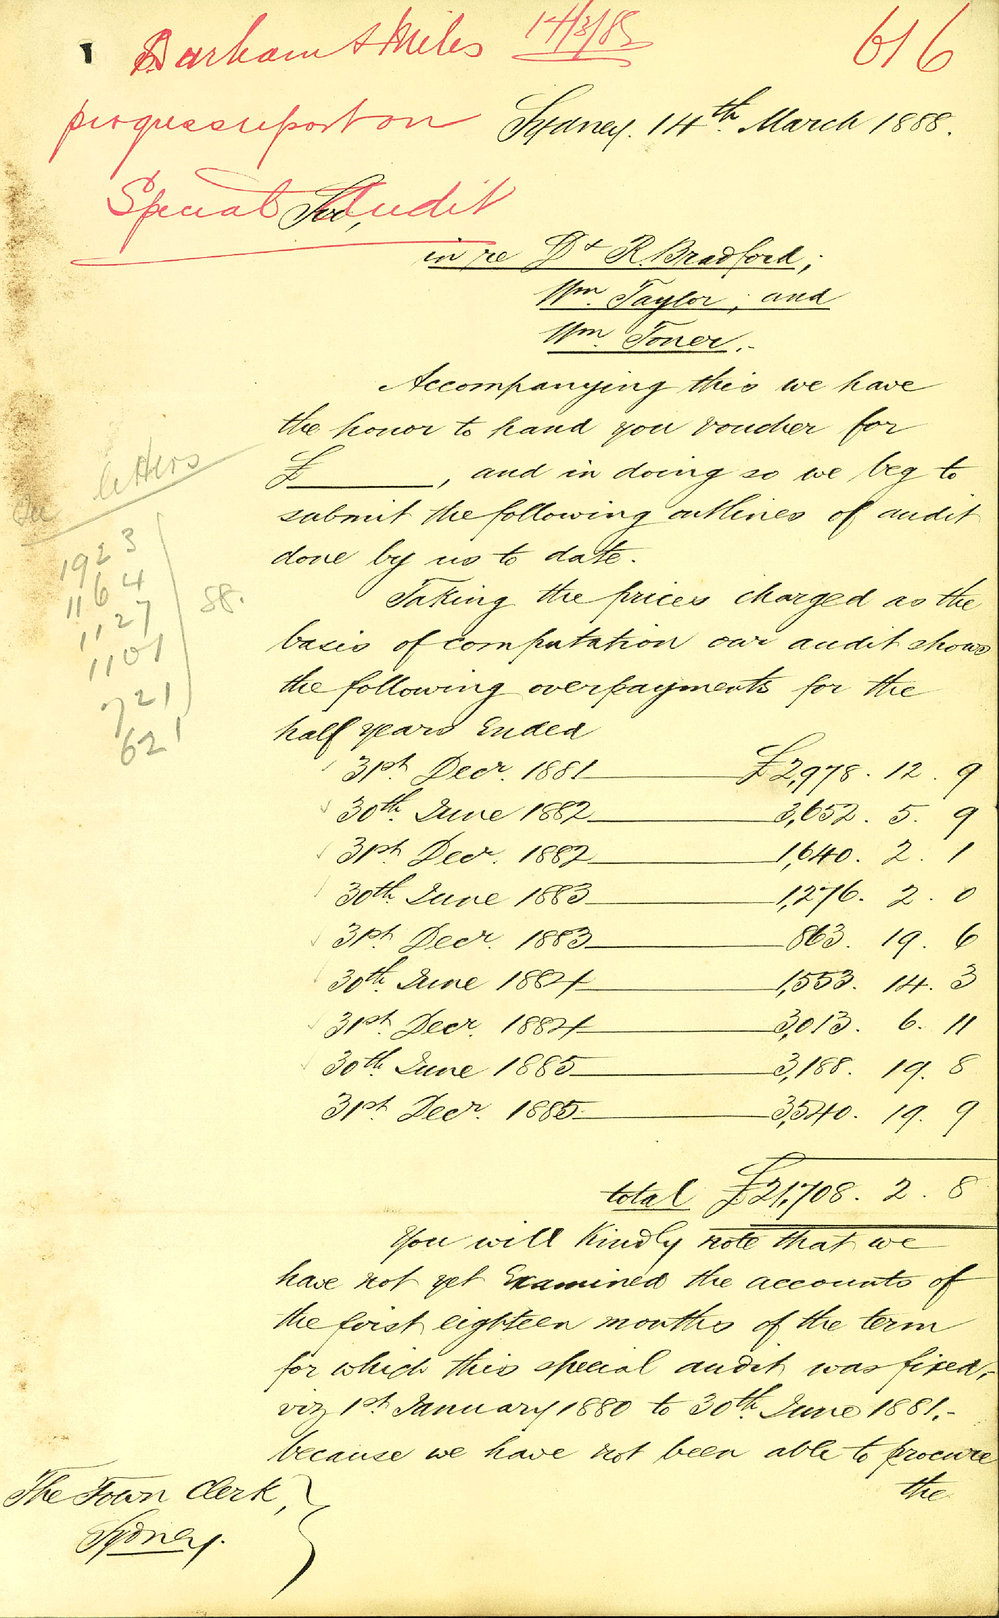 Barham & Miles 14/3/88 616
progress report on
Sydney. 14th. March 1888.
Special Audit
Sir,
in re D & R. Bradford;
Wm. Taylor; and
Wm. Toner.-
Accompanying this we have
the honor to hand you voucher for
£ , and in doing so we beg to
submit the following outlines of audit
done by us to date.
Taking the prices charged as the
basis of computation our audit shows
the following overpayments for the
half years Ended
letters
1923
1164
1127
1101
721
621
88.
31st Decr. 1881 £2,978. 12. 9
30th. June 1882 3,652. 5. 9
31st Decr. 1882 1,640. 2. 1
30th. June 1883 1,276. 2. 0
31st. Decr. 1883 863. 19. 6
30th. June 1884 1,553. 14. 3
31st. Decr. 1884 3,013. 6. 11
30th. June 1885 3,188. 19. 8
31st Decr. 1885 3,540. 19. 9
total £21,708. 2. 8
You will Kindly note that we
have not yet Examined the accounts of
the first eighteen months of the term
for which this special audit was fixed,-
viz 1st. January 1880 to 30th. June 1881.-
because we have not been able to procure
the
The Town Clerk,
Sydney.